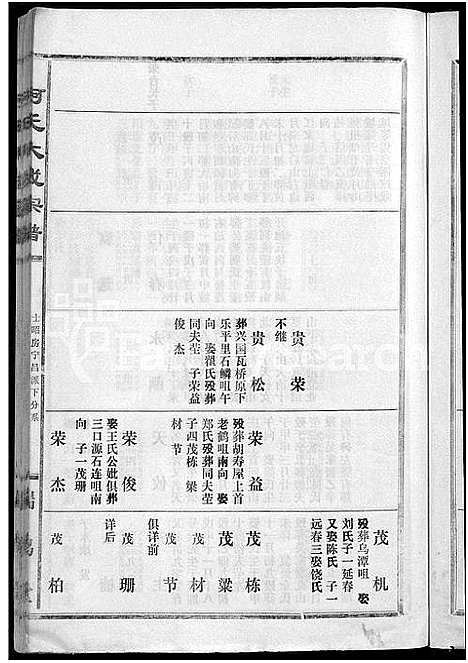 何氏大成宗谱
士昭房宁昌派下分系
贵荣
不继
贵松
葬兴国瓦桥原下
乐平里石鳞咀午
向 娶翟氏殁葬
同夫茔 子荣益
俊杰
荣益
殁葬胡寿屋上首
老鹤咀南向 娶
郑氏殁葬同夫茔
子四茂栋 梁
材 节
荣俊
娶王氏公妣俱葬
三口源石连咀南
向 子一茂珊
荣杰
茂机
殁葬乌潭咀 娶
刘氏子一延春
又娶陈氏 子一
远春三娶饶氏
茂栋
茂梁
茂材
茂节
俱详前
茂珊
详后
茂柏